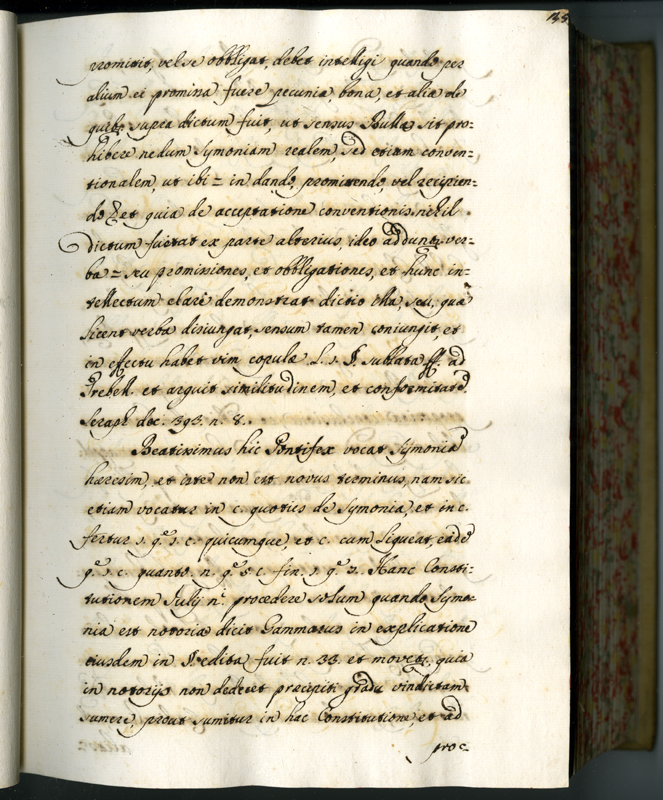 promitit, vel se obbligat, debet intelligi quando per
alium ei promissa fuere pecuniæ, bona, et alia de
quibs supra dictum fuit, ut sensus Bullæ sit pro=
hibere nedum symoniam realem, sed etiam conven=
tionalem, ut ibi = in dando, promittendo, vel recipien=
do et quia de acceptatione conventionis nihil
dictum fuerat ex parte alterius, ideo addunt ver=
ba = seu promissiones, et obbligationes, et hunc in=
tellectum clare demonstrat dictio illa, seu, quæ
licent verba disiungat, sensum tamen coniungit, et
in effectu habet vim copulæ L. 1. §. sublata ff. ad
Trebell. et arguit similitudinem, et conformitatē
Seraph. dec. 393. n. 8.
Beatissimus hic Pontifex vocat symoniā
hæresim, et iste non est novus terminus, nam sic
etiam vocatur in c. quoties de Symonia, et in c.
fertur 1. q. 1. c. quicumque, et c. cum liqueat, eadē
q. 1. c. quanto. n. q. 5. c. fin. 1. q. 3. Hanc Consti=
tutionem Julij n. procedere solum quando symo=
nia est notoria dicit Gammarus in explicatione
eiusdem in §. edita fuit n. 33. et movetr. quia
in notorijs non dedecet præcipiti gradu vindictam
sumere, prout sumitur in hac Constitutione, et ad
proc=